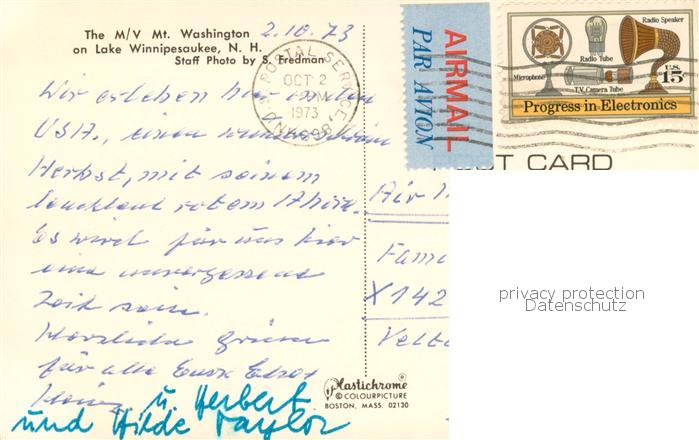 The M/V Mt. Washington
on Lake Winnipesaukee, N. H.
Staff Photo by S. Fredman
2.10.73
U.S. POSTAL SERVICE
OCT 2
PM
1973
AIRMAIL
PAR AVION
Radio Speaker
Radio Tube
Microphone
U.S. 15c
T.V. Camera Tube
Progress in Electronics
POST CARD
Wir erleben hier in den
USA, einen wunderschönen
Herbst, mit seinem
leuchtend rotem Ahorn.
Es wird für uns hier
eine unvergessene
Zeit sein.
Herzliche Grüsse
für alle Eure
Heinz
u Herbert
und Hilde Taylor
Air
Fami
X142
Velt
Plastichrome
© COLOURPICTURE
BOSTON, MASS. 02130
privacy protection
Datenschutz